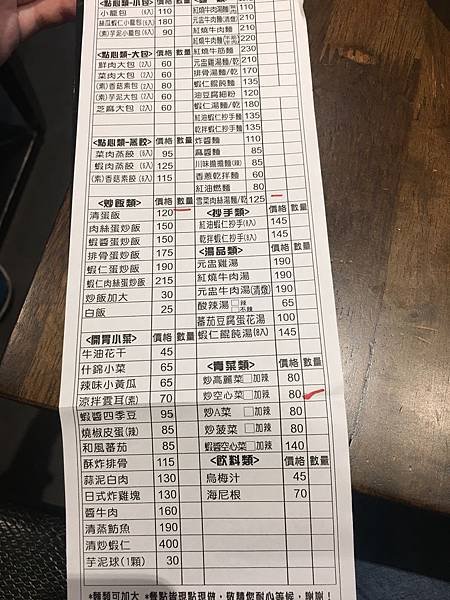 <點心類-小包> 價格 數量
小籠包 (6入) 110
絲瓜蝦仁小籠包(6入) 180
(素)芋泥小籠包(6入) 90
<點心類-大包> 價格 數量
鮮肉大包 (2入) 60
菜肉大包 (2入) 60
(素)香菇素包 (2入) 80
(素)芋泥大包 (2入) 60
芝麻大包 (2入) 60
<點心類-蒸餃> 價格 數量
菜肉蒸餃 (6入) 95
蝦肉蒸餃 (6入) 125
(素)香菇素餃 (6入) 115
<炒飯類> 價格 數量
清蛋飯 120
肉絲蛋炒飯 150
蝦醬蛋炒飯 150
排骨蛋炒飯 175
蝦仁蛋炒飯 190
蝦仁肉絲蛋炒飯 215
炒飯加大 30
白飯 25
<開胃小菜> 價格 數量
牛油花干 45
什錦小菜 65
辣味小黃瓜 65
涼拌雲耳(素) 70
蝦醬四季豆 95
燒椒皮蛋(辣) 85
和風蕃茄 85
酥炸排骨 115
蒜泥白肉 130
日式炸雞塊 130
醬牛肉 160
清蒸魴魚 190
清炒蝦仁 400
芋泥球(1顆) 30
紅燒牛肉湯麵 210
元盅牛肉湯麵(清燉) 210
紅燒牛肉麵 220
紅燒牛筋麵 230
元盅雞湯麵 210
排骨湯麵/乾 170
蝦仁餛飩麵 135
油豆腐細粉 120
蝦仁湯麵/乾 180
紅油蝦仁抄手麵 135
乾拌蝦仁抄手麵 135
炸醬麵 110
麻醬麵 85
川味擔擔麵(辣) 85
香蔥乾拌麵 60
紅油燃麵 80
雪菜肉絲湯麵/乾 125
<抄手類> 價格 數量
紅油蝦仁抄手(8入) 145
乾拌蝦仁抄手(8入) 145
<湯品類> 價格 數量
元盅雞湯 190
紅燒牛肉湯 190
元盅牛肉湯(清燉) 190
酸辣湯 □辣 □不辣 65
蕃茄豆腐蛋花湯 100
蝦仁餛飩湯(8入) 145
<青菜類> 價格 數量
炒高麗菜□加辣 80
炒空心菜□加辣 80
炒A菜 □加辣 80
炒菠菜 □加辣 80
蝦醬空心菜□加辣 140
<飲料類> 價格 數量
烏梅汁 45
海尼根 70
*麵類可加大 *餐點皆現點現做，敬請您耐心等候，謝謝！